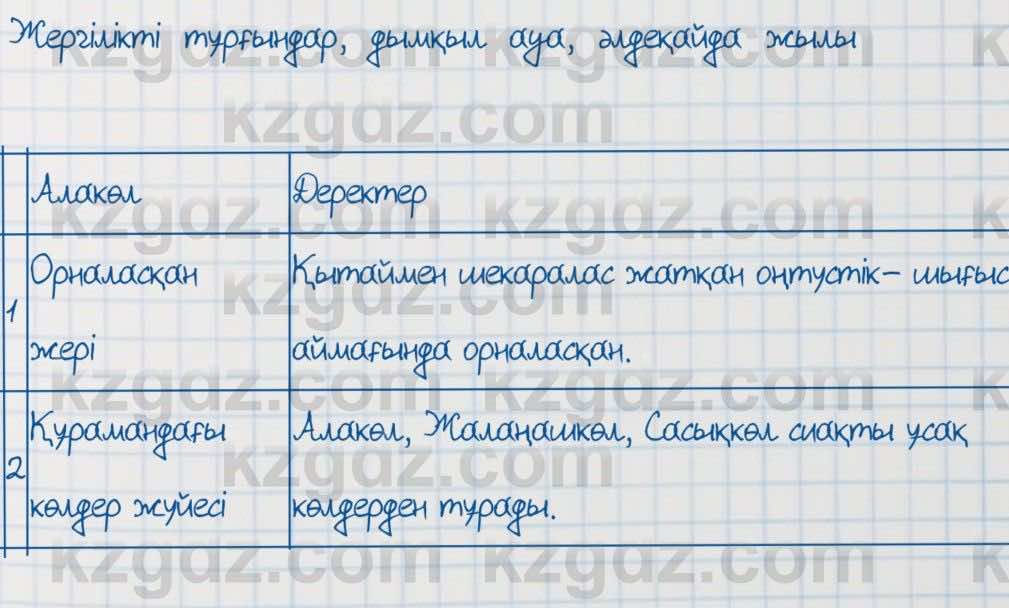 Жергілікті тұрғындар, дымқыл ауа, әлдеқайда жылы
Алакөл
Деректер
1
Орналасқан
жері
Қытаймен шекаралас жатқан оңтүстік– шығыс
аймағында орналасқан.
2
Құрамандағы
көлдер жүйесі
Алакөл, Жалаңашкөл, Сасықкөл сиақты ұсақ
көлдерден тұрады.
kzgdz.com